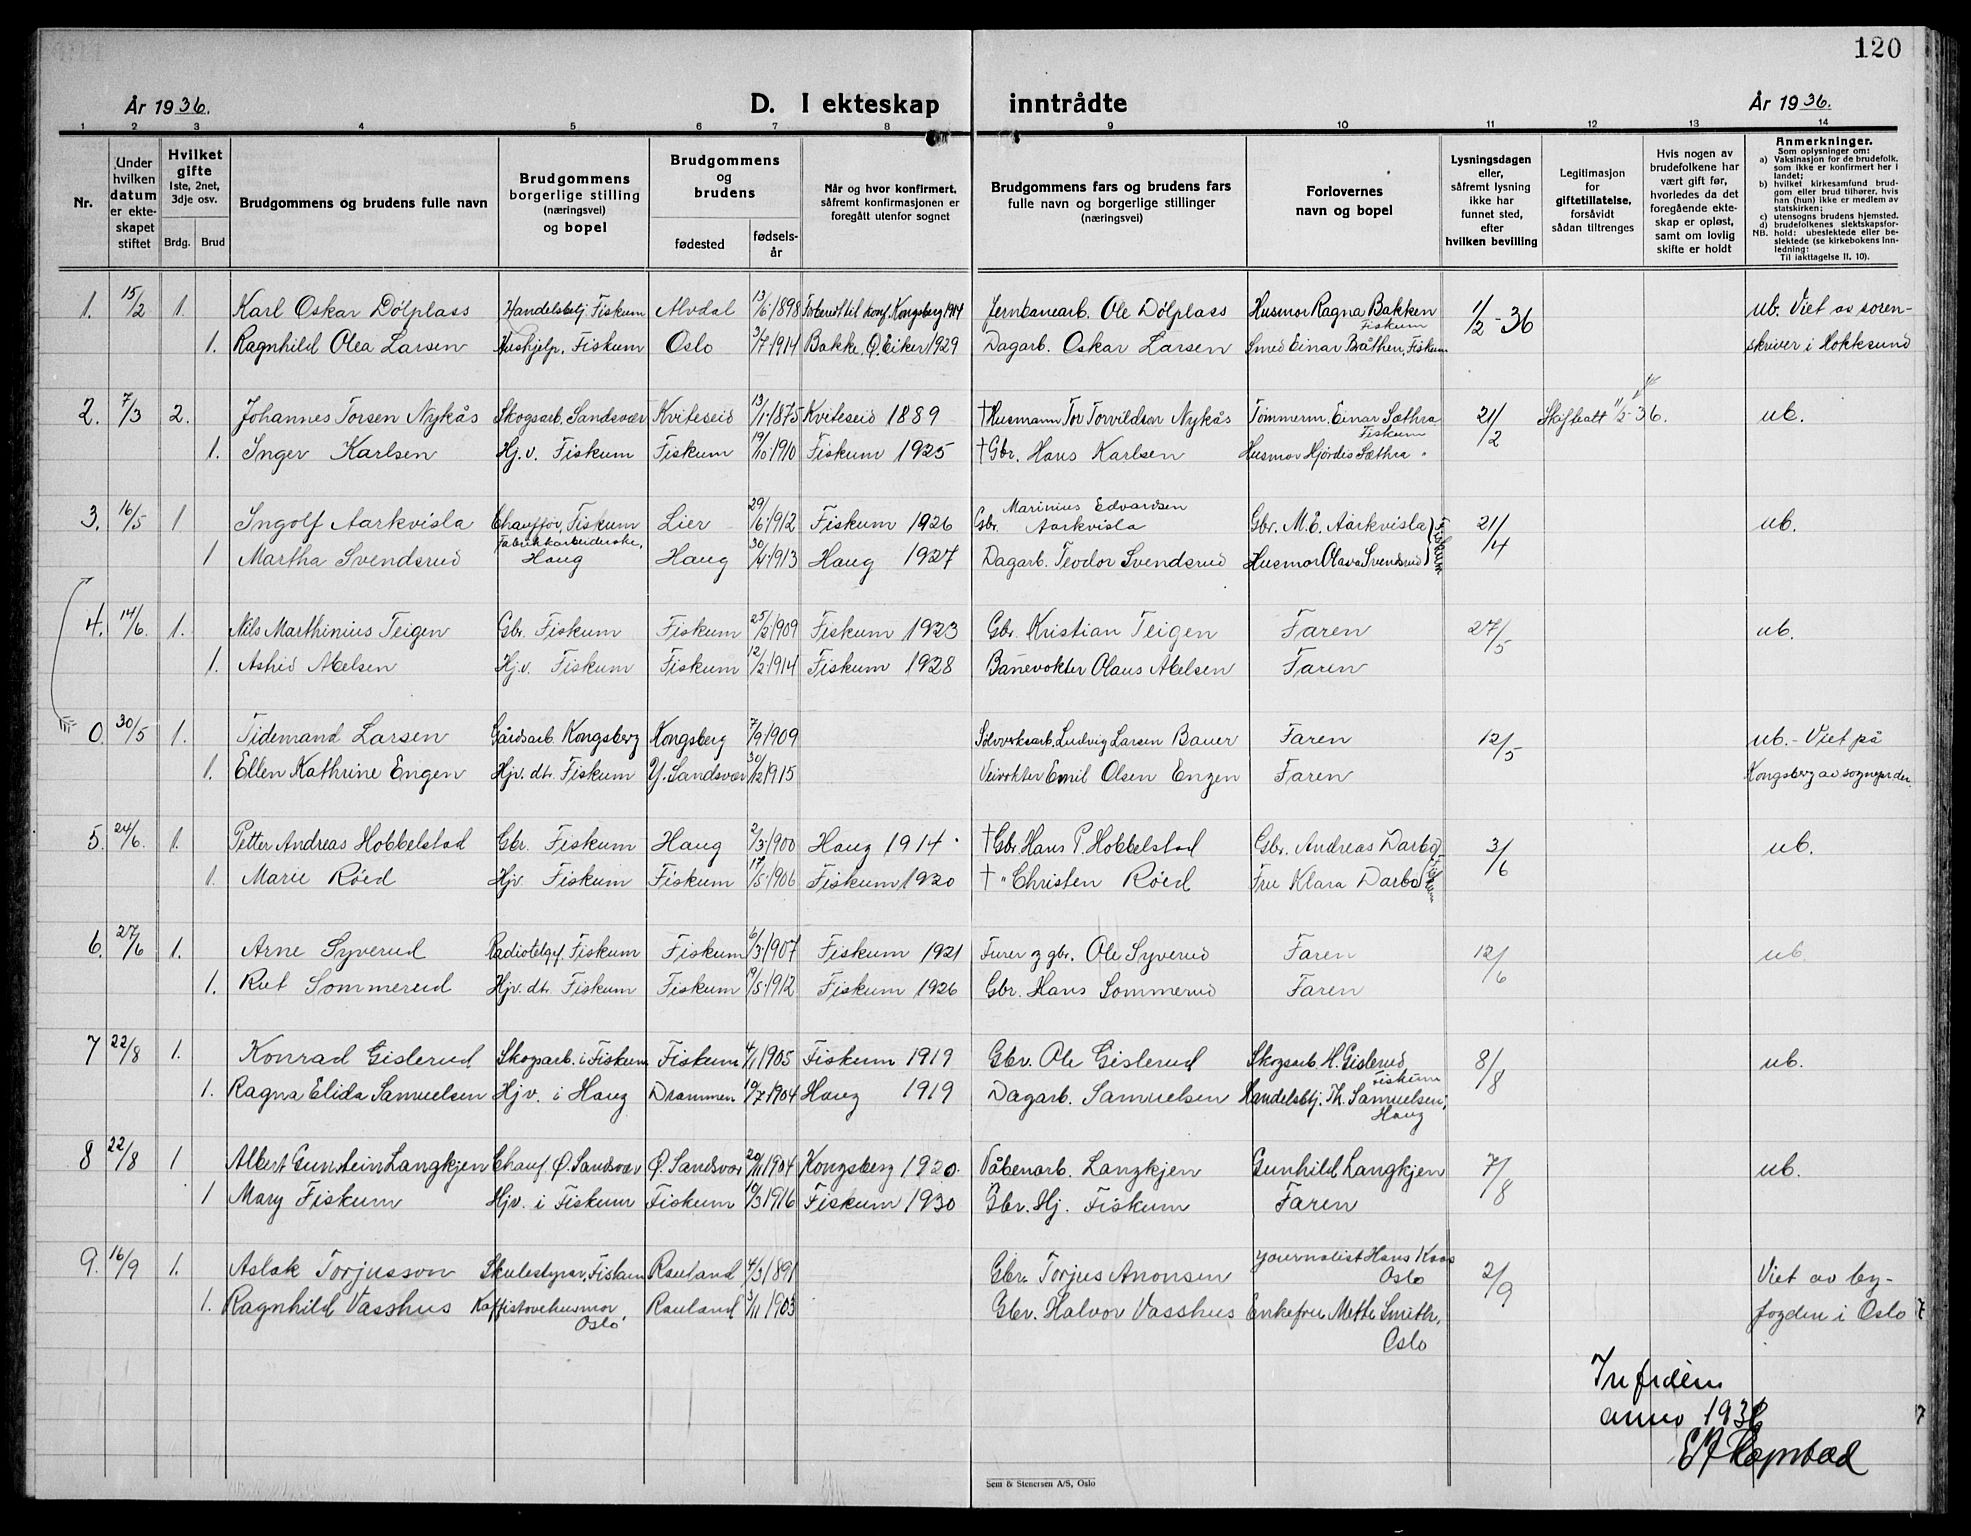 120
År 1936.
D. I ekteskap inntrådte
År 1936.
1 2 3 4 5 6 7 8 9 10 11 12 13 14
Nr.
Under hvilken datum er ekteskapet stiftet
Hvilket gifte
1ste, 2net, 3dje osv.
Brdg. Brud
Brudgommens og brudens fulle navn
Brudgommens borgerlige stilling (næringsvei) og bopel
Brudgommens og brudens
fødested
fødselsår
Når og hvor konfirmert, såfremt konfirmasjonen er foregått utenfor sognet
Brudgommens fars og brudens fars fulle navn og borgerlige stillinger (næringsvei)
Forlovernes navn og bopel
Lysningsdagen eller, såfremt lysning ikke har funnet sted, efter hvilken bevilling
Legitimasjon for giftetillatelse, forsåvidt sådan tiltrenges
Hvis nogen av brudefolkene har vært gift før, hvorledes da det foregående ekteskap er opløst, samt om lovlig skifte er holdt
Anmerkninger.
Som oplysninger om:
a) Vaksinasjon for de brudefolk, som ikke er konfirmert her i landet;
b) hvilket kirkesamfund brudgom eller brud tilhører, hvis han (hun) ikke er medlem av statskirken;
c) utensogns brudens hjemsted.
d) brudefolkenes slektskapsforhold: ubeslektede eller beslektede (se kirkebokens Innledning:
NB.
Til iakttagelse II, 10).
1. 15/2 1. Karl Oskar Dölplass Handelsbetj. Fiskum Alvdal 13/6 1898 Forberedt til konf. Kongsberg 1914 Jernbanearb. Ole Dölplass Husmor Ragna Bakken Fiskum 1/2-36 ub. Viet av soren-
1. Ragnhild Olea Larsen Hushjelp, Fiskum Oslo 3/7 1914 Bakke. Ø. Eiker 1929 Dagarb. Oskar Larsen Smed Einar Bråthen, Fiskum skriver i Hokksund
2. 7/3 2. Johannes Torsen Nykås Skogsarb. Sandsvær Kviteseid 13/1 1875 Kviteseid 1889 † Husmann Tor Torvildsen Nykås Tömmerm. Einar Sæthra Fiskum 21/2 Skifteatt 11/5-36. ub.
1. Inger Karlsen Hj.v. Fiskum Fiskum 19/10 1910 Fiskum 1925 † Gbr. Hans Karlsen Husmor Hjördis Sæthra "
3. 16/5 1 Ingolf Aarkvisla Chaufför, Fiskum Lier 29/6 1912 Fiskum 1926 Gbr. Marinius Edvardsen Aarkvisla Gbr. M.E. Aarkvisla 21/4 ub.
1 Martha Svendsrud Fabrikkarbeiderske, Haug Haug 30/4 1913 Haug 1927 Dagarb. Teodor Svendsrud Husmor Olava Svendsrud Fiskum
4. 14/6. 1. Nils Marthinius Teigen Gbr. Fiskum Fiskum 25/2 1909 Fiskum 1923 Gbr. Kristian Teigen Faren 27/5 ub.
1. Astrid Abelsen Hj.v. Fiskum Fiskum 12/2 1914 Fiskum 1928 Banevokter Olaus Abelsen Faren
0. 30/5 1. Tidemand Larsen Gårdsarb. Kongsberg Kongsberg 7/9 1909 Sölvverksarb. Ludvig Larsen Bauer Faren 12/5 ub. - Viet på
1. Ellen Kathrine Engen Hjv. dtr. Fiskum Y. Sandsvær 30/12 1915 Veivokter Emil Olsen Engen Faren Kongsberg av sogneprden.
5. 24/6. 1. Petter Andreas Hobbelstad Gbr. Fiskum Haug 2/3 1900 Haug 1914. † Gbr. Hans P. Hobbelstad Gbr. Andreas Darbo 3/6 ub.
1. Marie Röed Hjv. Fiskum Fiskum 17/5 1906 Fiskum 1920 † " Christen Röed Fru Klara Darbo Fiskum
6. 27/6 1. Arne Syverud Radiotelgrf. Fiskum Fiskum 6/3 1907 Fiskum 1921 Furer og gbr. Ole Syverud Faren 12/6 ub.
1. Rut Sommerud Hjv. dtr. Fiskum Fiskum 19/5 1912 Fiskum 1926 Gbr. Hans Sommerud Faren
7 22/8 1. Konrad Gislerud Skogsarb. i Fiskum Fiskum 4/11 1905 Fiskum 1919 Gbr. Ole Gislerud Skogsarb. H. Gislerud, Fiskum 8/8 ub.
1. Ragna Elida Samuelsen Hjv. i Haug Drammen 19/7 1904 Haug 1919 Dagarb. Samuelsen Handelsbtj. Th. Samuelsen, Haug
8 22/8 1 Albert Gunstein Langkjen Chauf. Ø. Sandsvær Ø. Sandsvær 20/11 1904 Kongsberg 1920. Våbenarb. Langkjen Gunhild Langkjen 7/8 ub.
1 Mary Fiskum Hjv. i Fiskum Fiskum 19/3 1916 Fiskum 1930 Gbr. Hj. Fiskum Faren
9. 16/9 1. Aslak Torjusson Skulestyrar, Fiskum Rauland 4/3 1891 Gbr. Torjus Aanonsen Journalist Hans Kaas Oslo 2/9 Viet av by-
1. Ragnhild Vasshus Kaffistovehusmor Oslo Rauland 3/11 1903 Gbr. Halvor Vasshus Enkefru Mette Smith, Oslo fogden i Oslo
In fidem
anno 1936
Sem & Stenersen A/S, Oslo